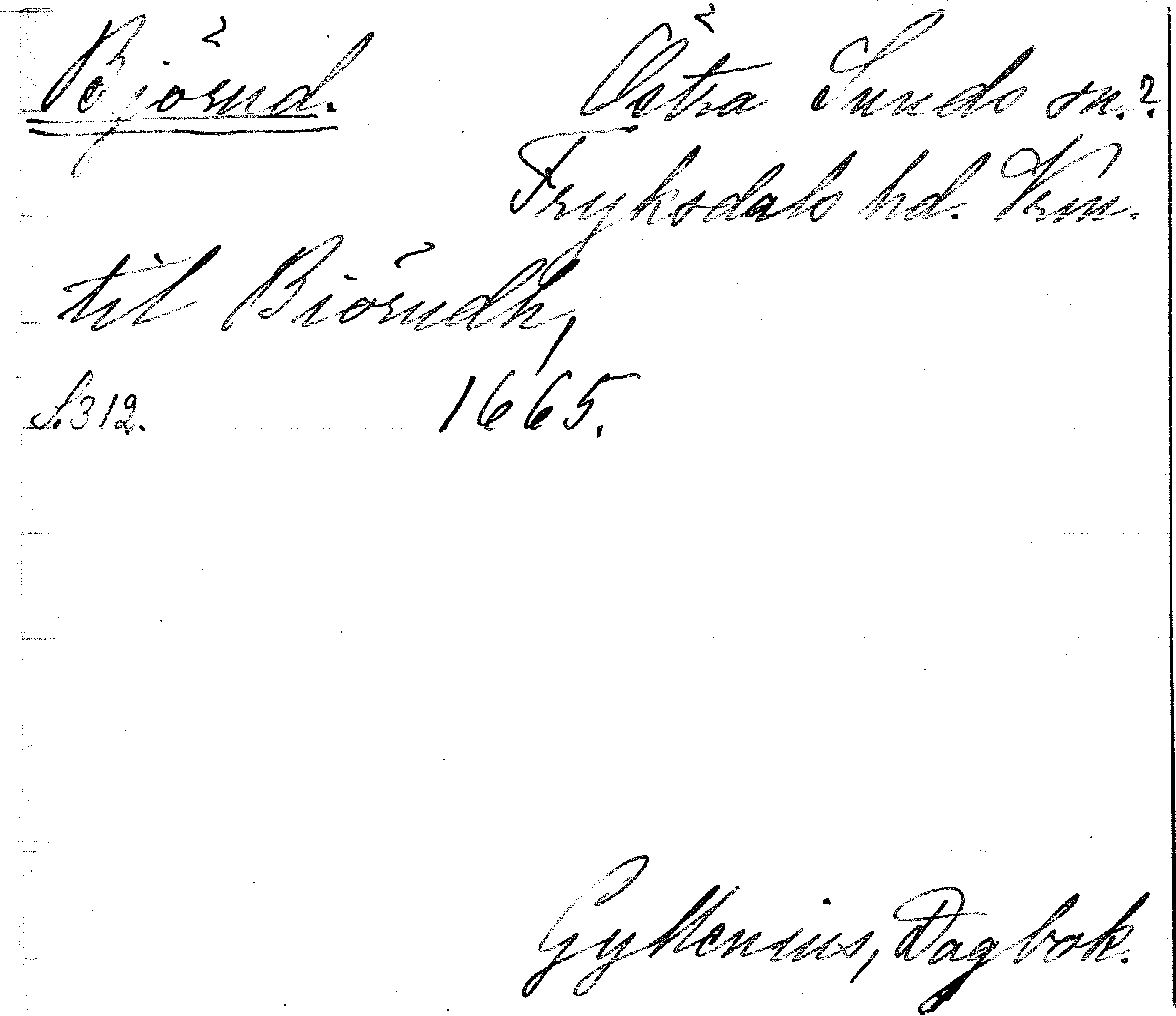 Björud. Östra Sunds sn.?
Fryksdals hd. Vrm.
til Biörudh,
S. 312. 1665.
Gyllenius, Dagbok.